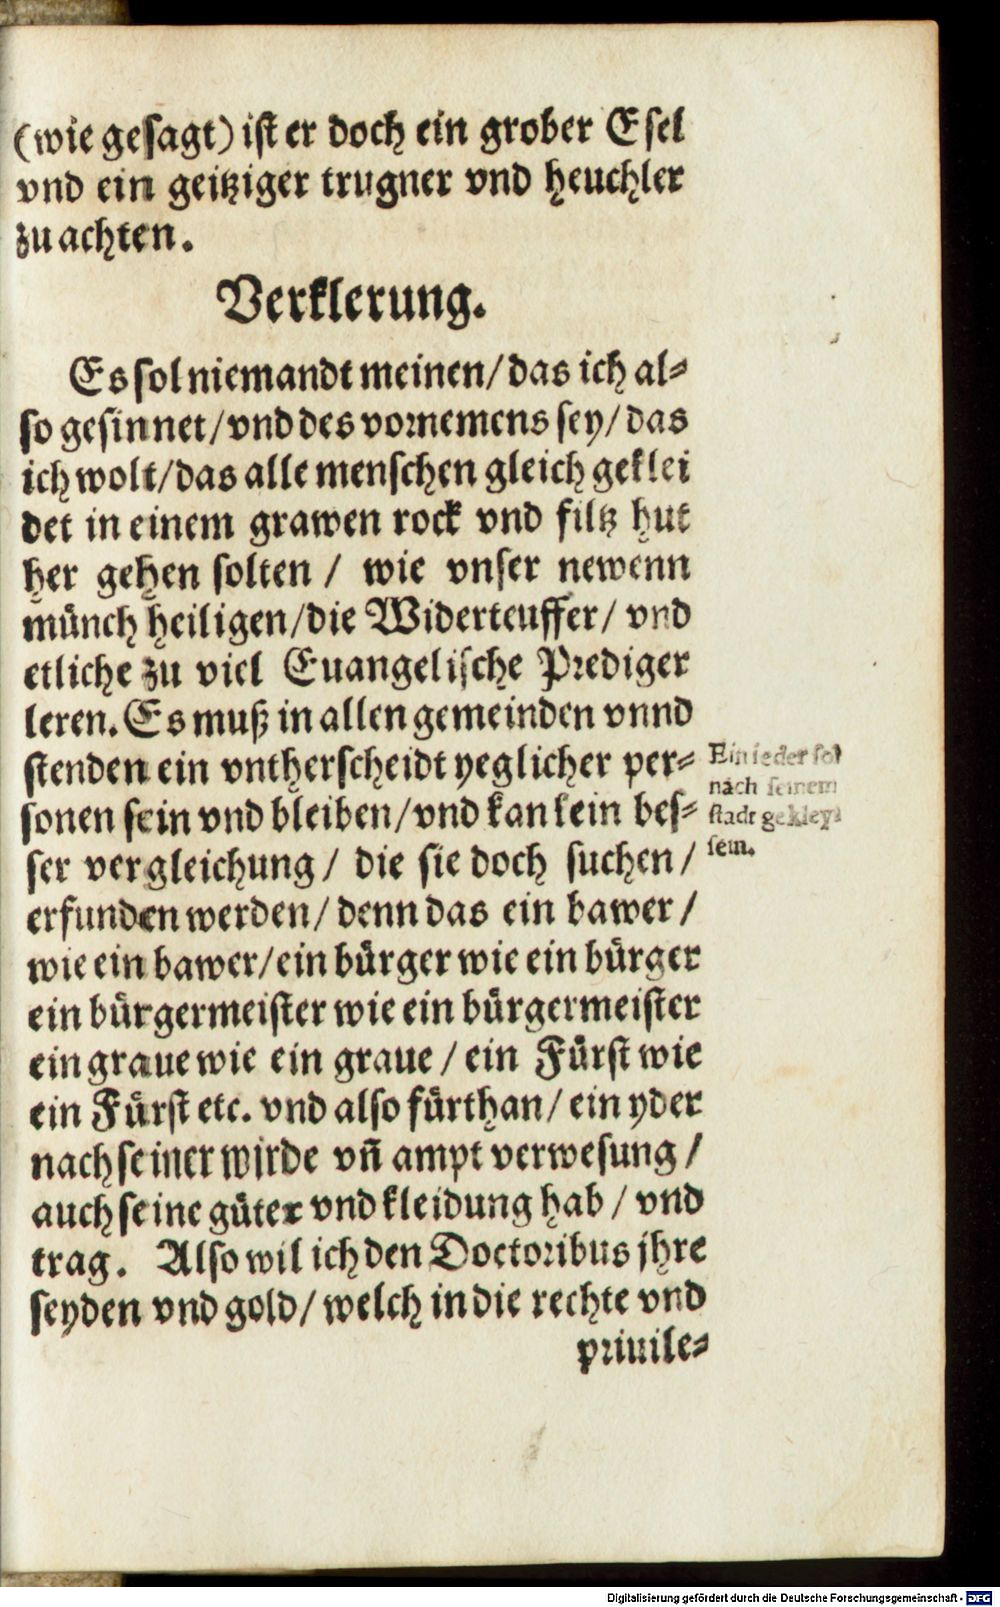 (wie gesagt) ist er doch ein grober Esel
vnd ein geitziger trugner vnd heuchler
zu achten.
Verklerung.
Es sol niemandt meinen/ das ich al-
so gesinnet/ vnd des vornemens sey/ das
ich wolt/ das alle menschen gleich geklei
det in einem grawen rock vnd filtz hut
her gehen solten / wie vnser newenn
münch heiligen/ die Widerteuffer/ vnd
etliche zu viel Euangelische Prediger
leren. Es muß in allen gemeinden vnnd
stenden ein vntherscheidt yeglicher per-
sonen sein vnd bleiben/ vnd kan kein bes-
ser vergleichung/ die sie doch suchen/
erfunden werden/ denn das ein bawer/
wie ein bawer/ ein bürger wie ein bürger
ein bürgermeister wie ein bürgermeister
ein graue wie ein graue / ein Fürst wie
ein Fürst etc. vnd also fürthan/ ein yder
nach seiner wirde vñ ampt verwesung /
auch seine güter vnd kleidung hab / vnd
trag. Also wil ich den Doctoribus jhre
seyden vnd gold/ welch in die rechte vnd
priuile-
Ein ieder sol
nach seinem
stadt gekley
sein.
Digitalisierung gefördert durch die Deutsche Forschungsgemeinschaft - DFG